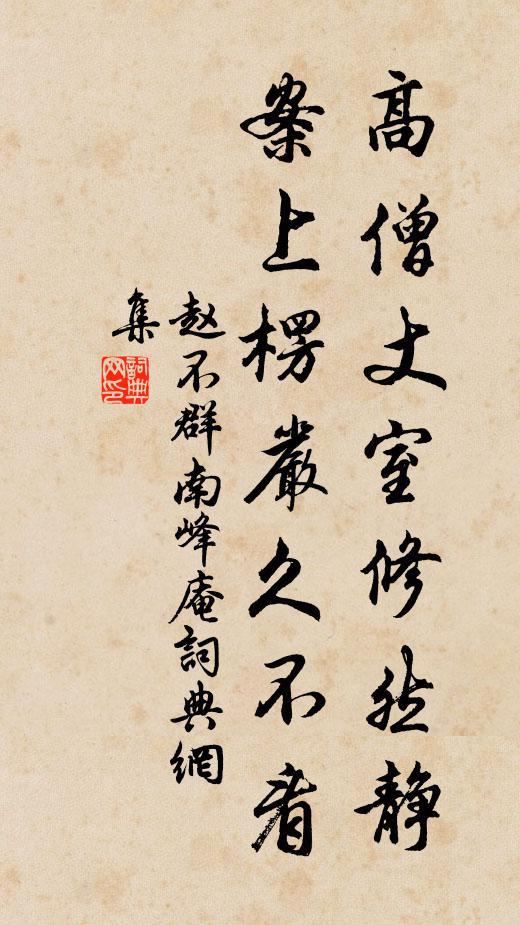 高僧丈室修然静
案上楞嚴久不看
赵不群南峰庵詞典網
集
詞典
网印